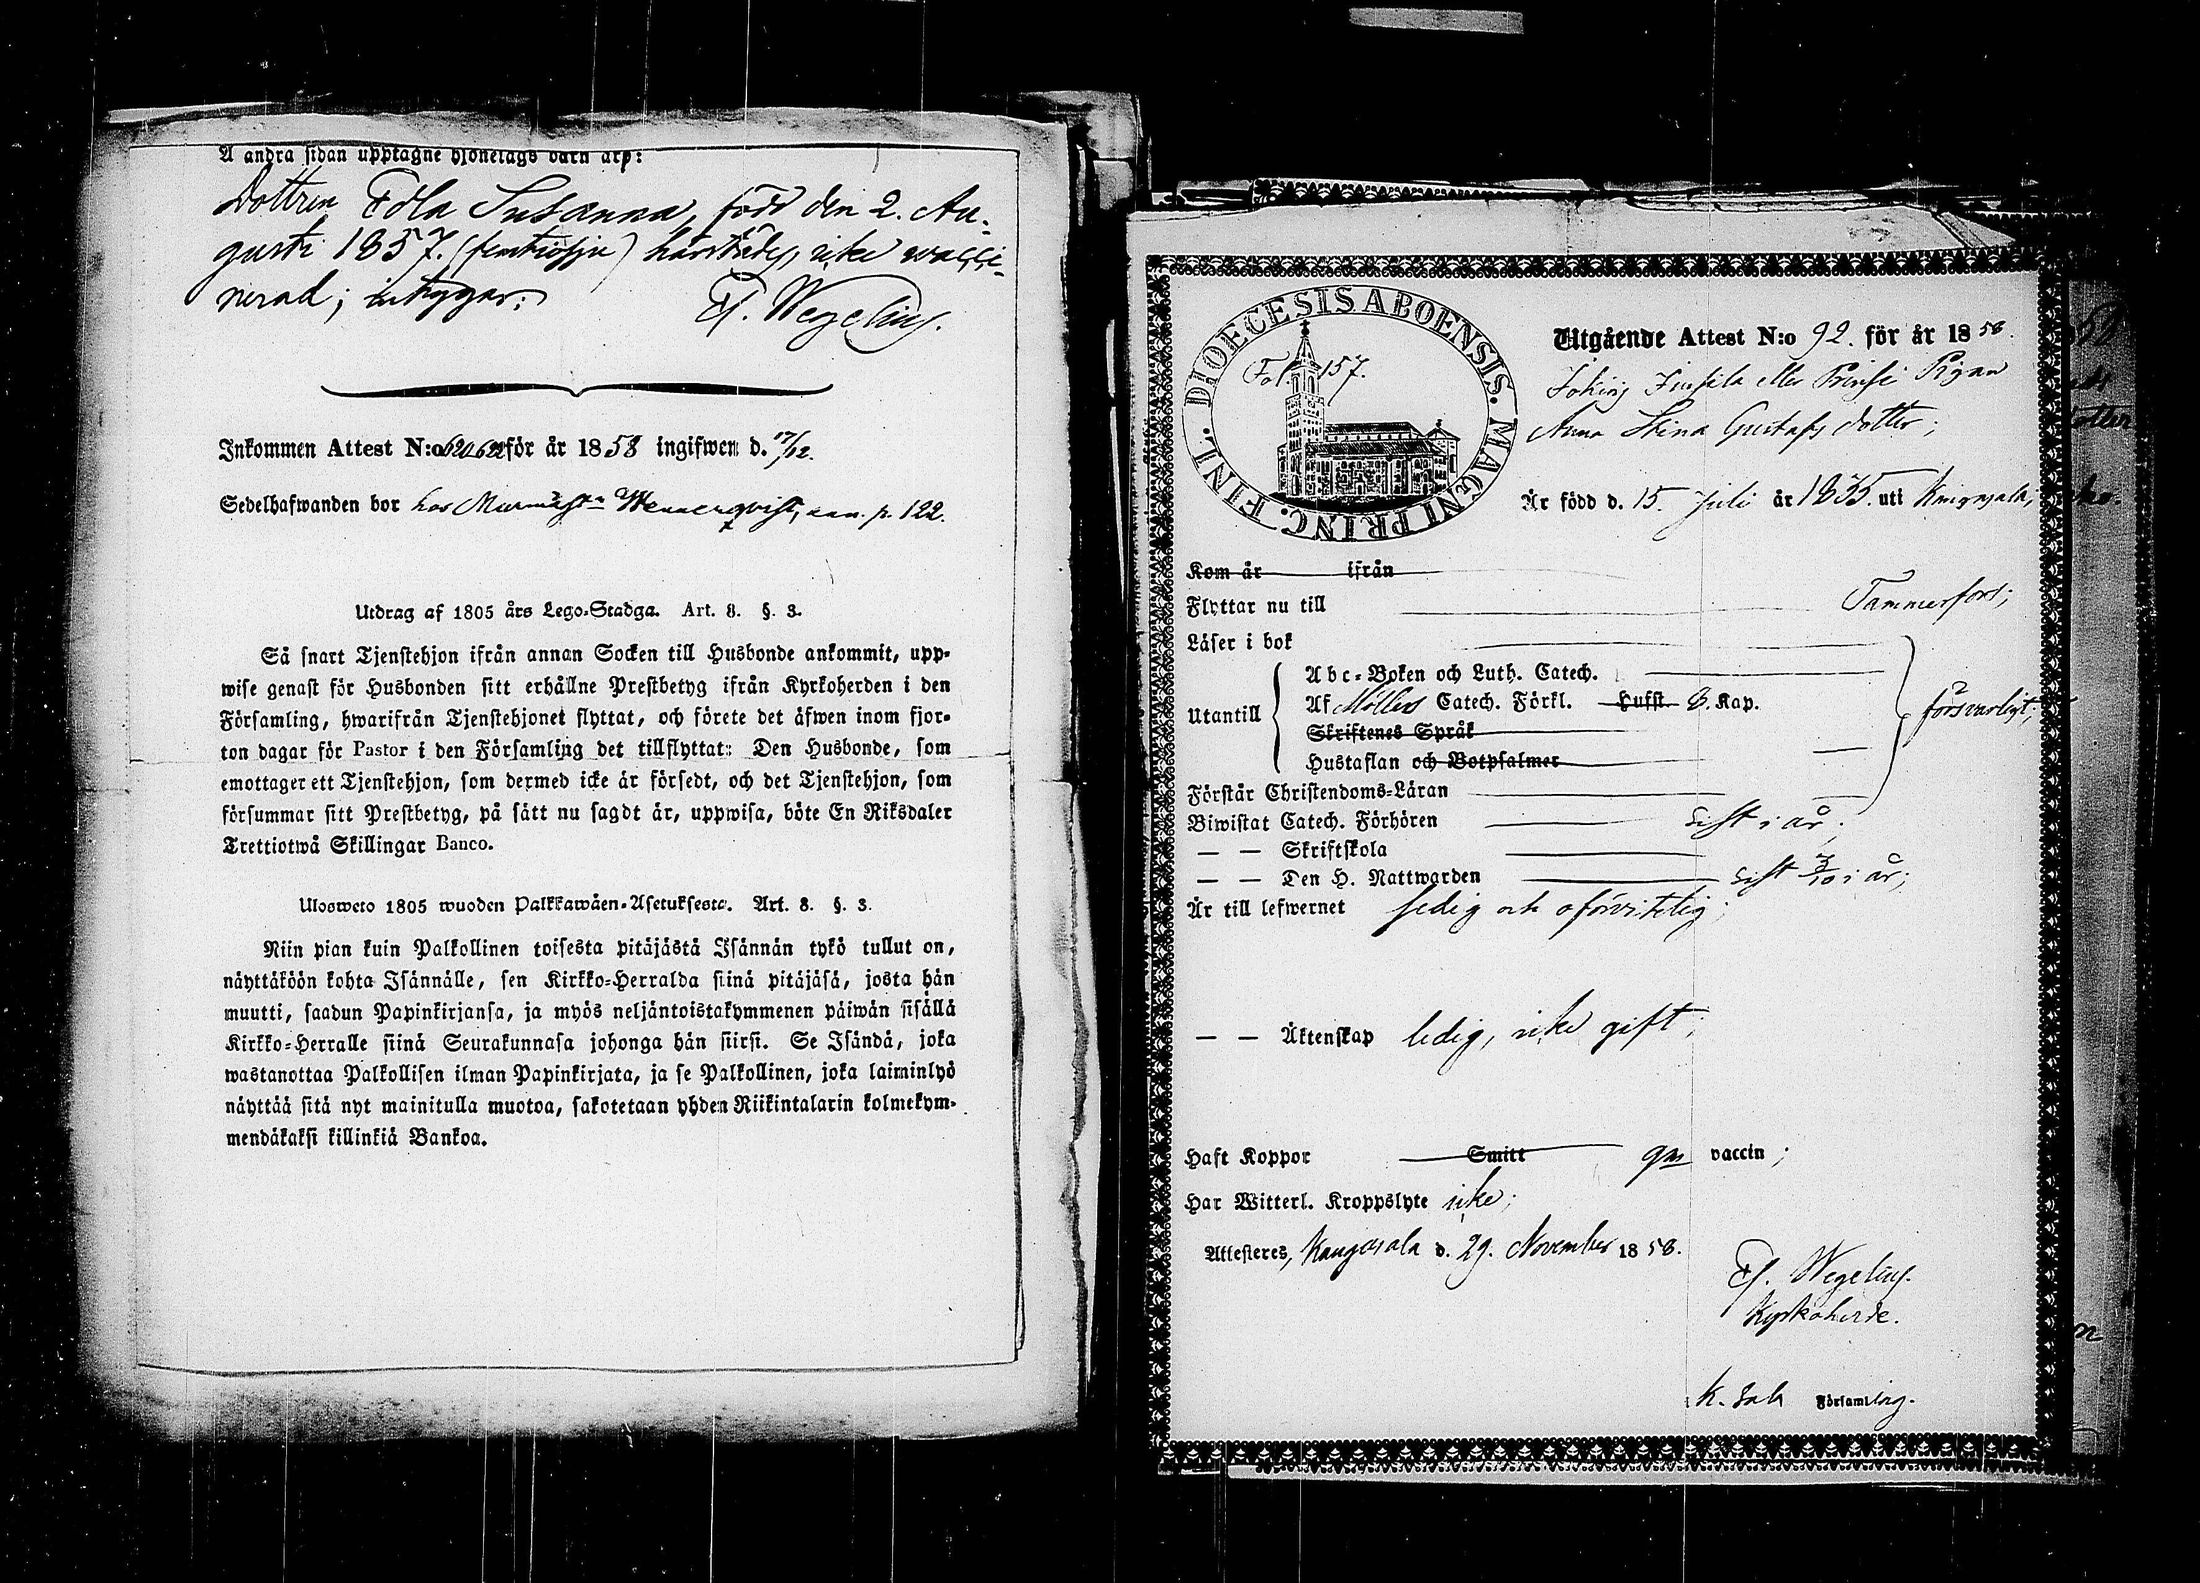 Å andra sidan upptagne Hjonelags barn äro:
Dottren Edla Susanna, född den 2. Au-
gusti 1857. (femtiosju) härstädes, icke vacci-
nerad; intygar:
Fr. Wegelius.
Inkommen Attest N:o 620.622 för år 1858 ingifwen d. 17/12.
Sedelhafwanden bor hos Murmäst:n Wennerqvist, ann. p. 122.
Utdrag af 1805 års Lego-Stadga. Art. 8. §. 3.
Så snart Tjenstehjon ifrån annan Socken till Husbonde ankommit, upp-
wise genast för Husbonden sitt erhållne Prestbetyg ifrån Kyrkoherden i den
Församling, hwarifrån Tjenstehjonet flyttat, och förete det äfwen inom fjor-
ton dagar för Pastor i den Församling det tillflyttat: Den Husbonde, som
emottager ett Tjenstehjon, som dermed icke är försedt, och det Tjenstehjon, som
försummar sitt Prestbetyg, på sätt nu sagdt är, uppwisa, böte En Riksdaler
Trettiotwå Skillingar Banco.
Ulosweto 1805 wuoden Palkkawäen-Asetuksesta. Art. 8. §. 3.
Niin pian kuin Palkollinen toisesta pitäjästä Isännän tykö tullut on,
näyttäköön kohta Isännälle, sen Kirkko-Herralda siinä pitäjäsä, josta hän
muutti, saadun Papinkirjansa, ja myös neljäntoistakymmenen päiwän sisällä
Kirkko-Herralle siinä Seurakunnasa johonga hän siirsi. Se Isändä, joka
wastanottaa Palkollisen ilman Papinkirjata, ja se Palkollinen, joka laiminlyö
näyttää sitä nyt mainitulla muotoa, sakotetaan yhden Riikintalarin kolmekym-
mendäkaksi killinkiä Bankoa.
DIOECESIS ABOENSIS. MAGNI PRINC. FINL.
Fol. 157.
Utgående Attest N:o 92. för år 1858.
eller Pigan
Anna Stina Gustafsdotter;
Är född d. 15. Juli år 1835. uti Kangasala,
Kom år ifrån
Flyttar nu till Tammerfors;
Läser i bok
Utantill
Abc-Boken och Luth. Catech.
Af Möllers Catech. Förkl. Hufst. 8. Kap.
försvarligt;
Skriftenes Språk
Hustaflan och Botpsalmer
Förstår Christendoms-Läran
Biwistat Catech. Förhören sist i år;
— — Skriftskola
— — Den H. Nattwarden sist 3/10 i år;
Är till lefwernet ledig och oförvitelig;
— — Äktenskap ledig, icke gift;
Haft Koppor Smitt gm vaccin;
Har Witterl. Kroppslyte icke;
Attesteres, Kangasala d. 29. November 1858.
Fr. Wegelius.
Kyrkoherde.
K. sala Församling.